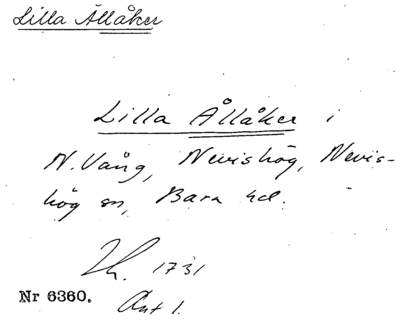 Lilla Ållåker
Lilla Ållåker i
N. Vång, Nevishög, Nevis-
hög sn, Bara hd.
Lh. 1731
Nr 6360. Ant 1.